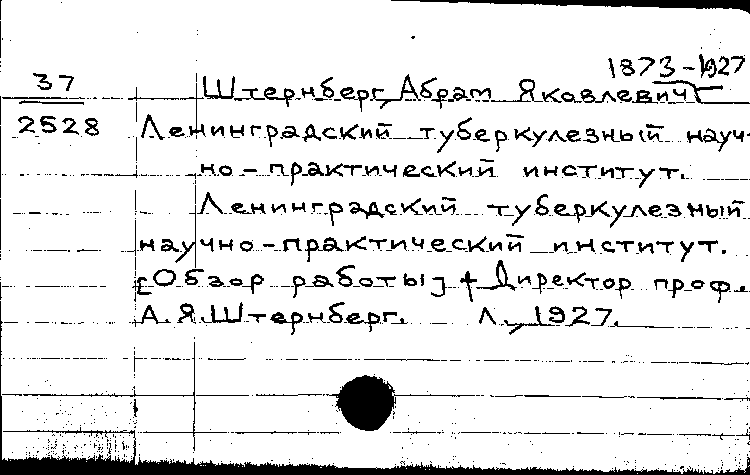 1873-1927
37
Штернберг, Абрам Яковлевич
2528
Ленинградский туберкулезный науч-
но-практический институт.
Ленинградский туберкулезный
научно-практический институт.
[Обзор работы] + Директор проф.
А.Я.Штернберг. Л., 1927.